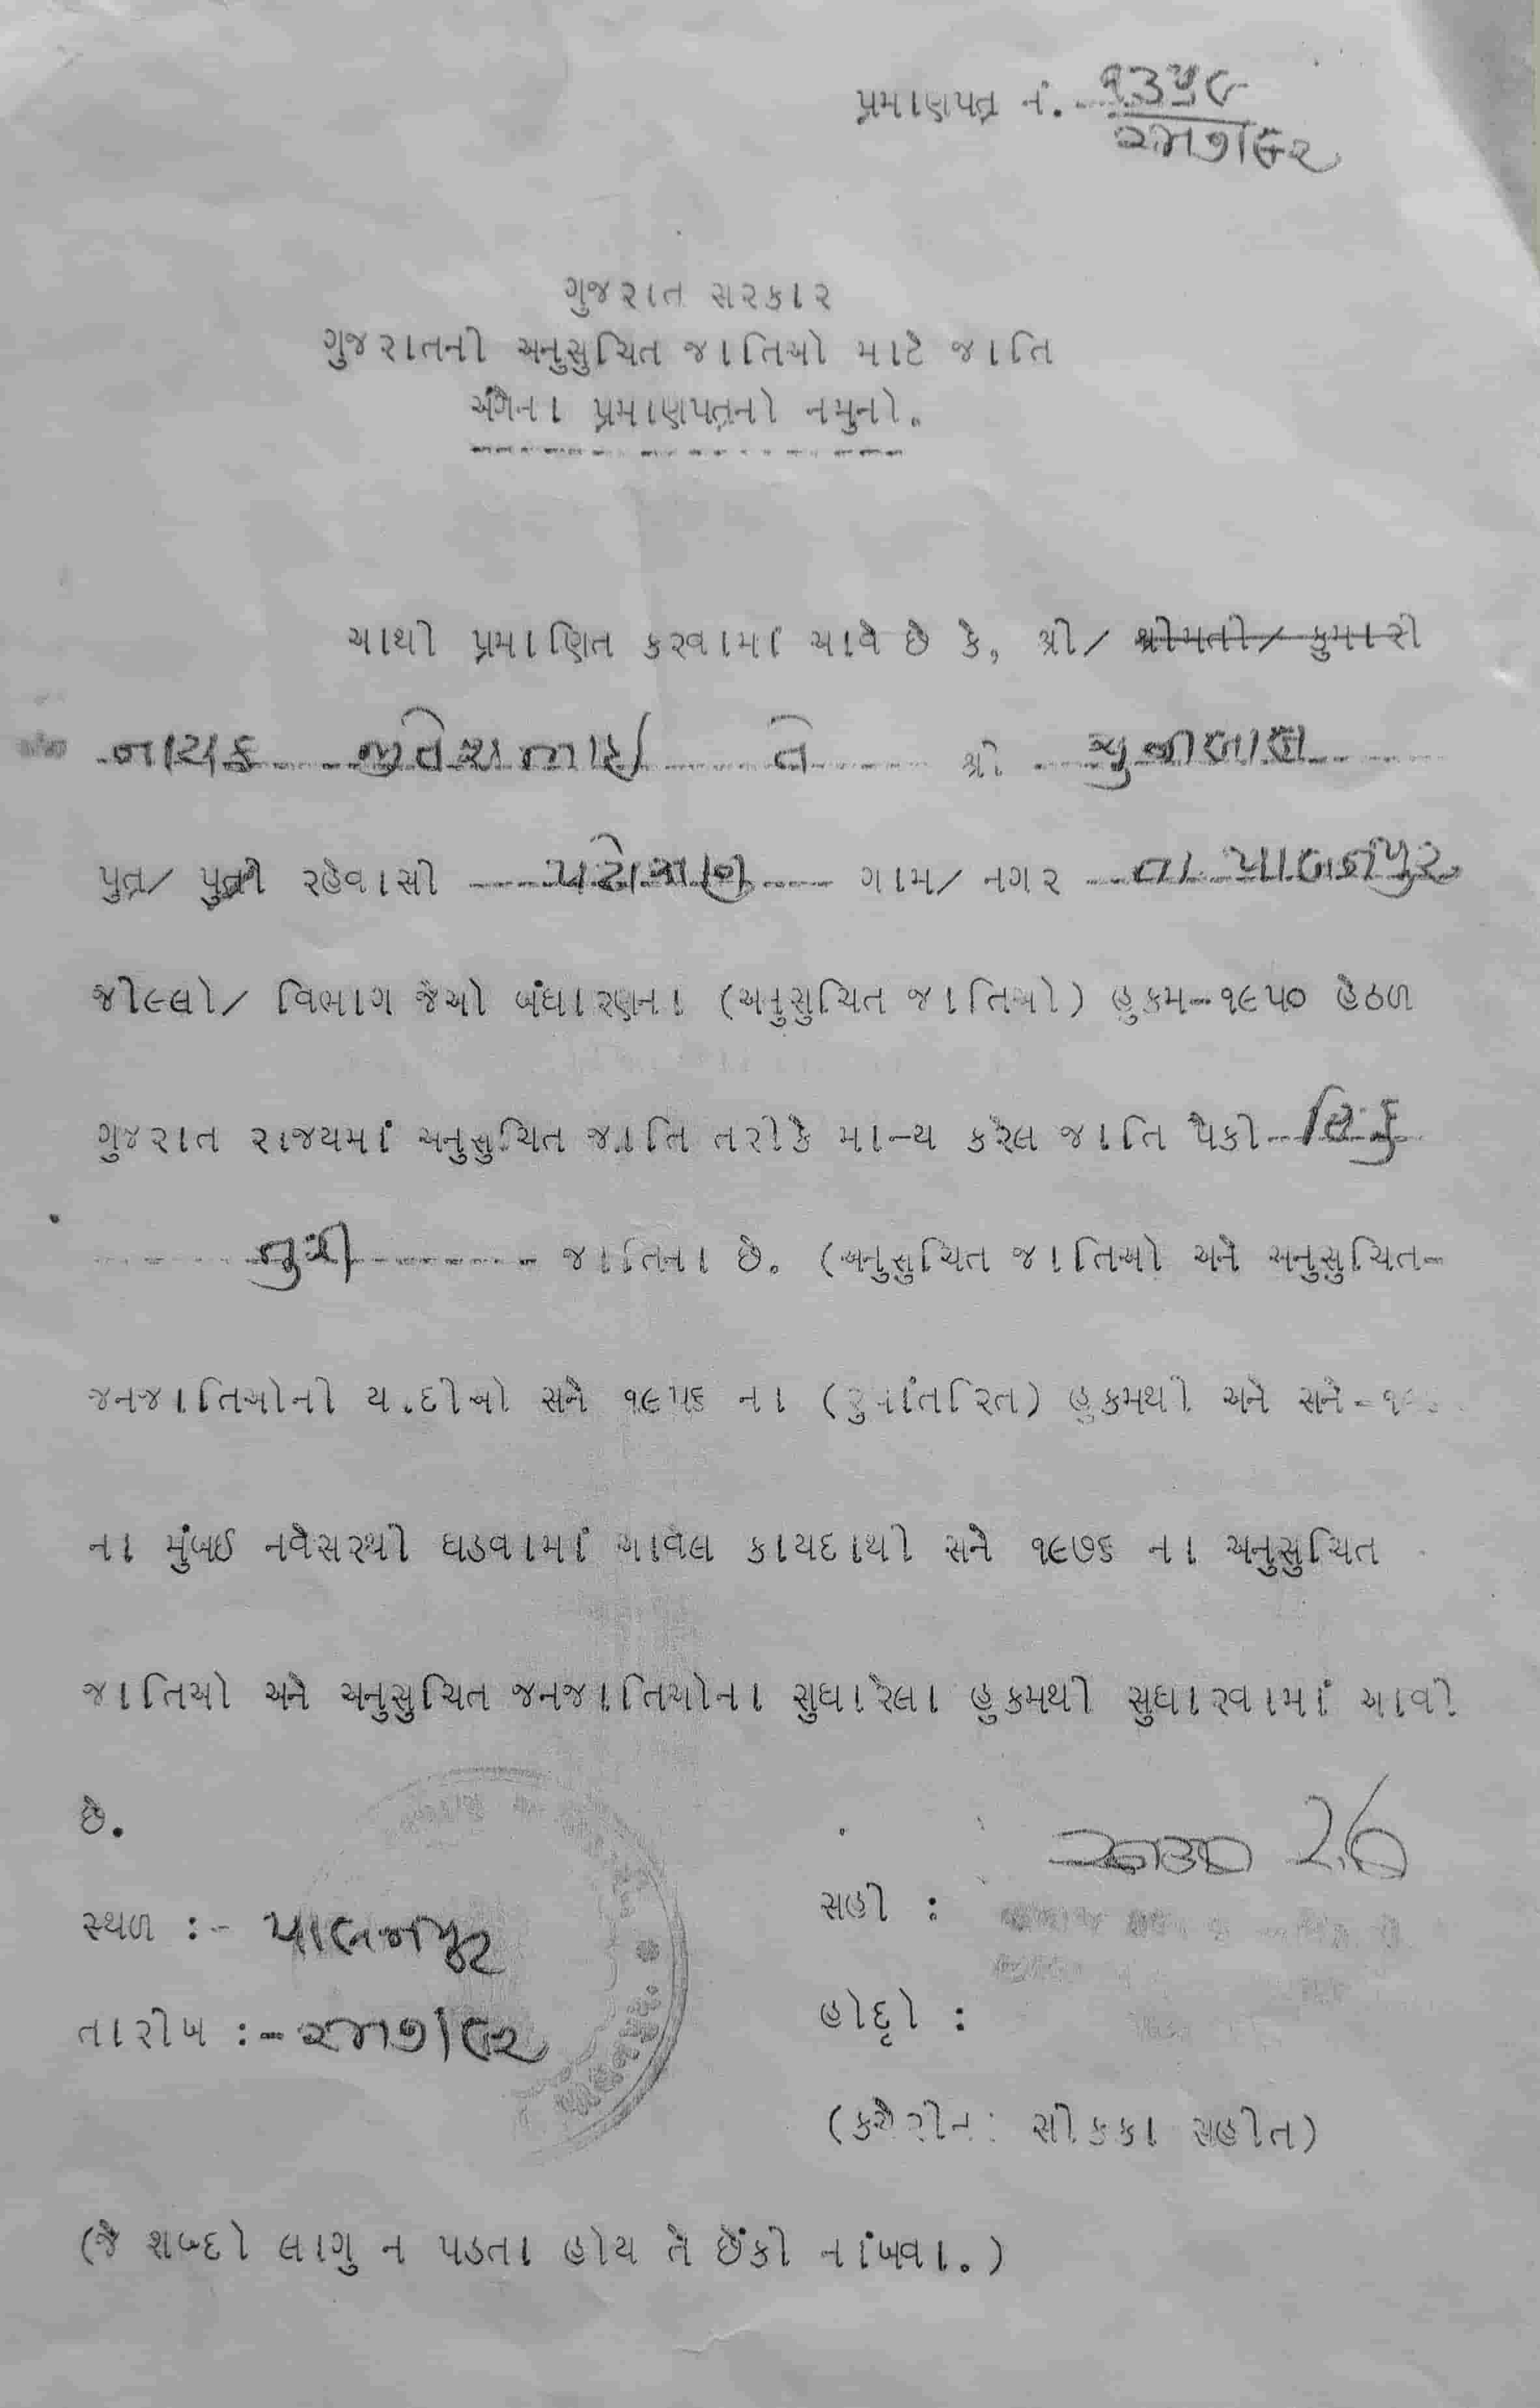 પ્રમાણપત્ર નં. ૧૩૫૯
ગુજરાત સરકાર
ગુજરાતની અનુસુચિત જાતિઓ માટે જાતિ
અંગેના પ્રમાણપત્રનો નમુનો.
આથી પ્રમાણિત કરવામાં આવે છે કે, શ્રી/ શ્રીમતી/ કુમારી
નાયક જીતેશભાઈ તે શ્રી ચુનીલાલ
પુત્ર/ પુત્રી રહેવાસી ગામ/ નગર તા. પાલનપુર
જીલ્લો/ વિભાગ જેઓ બંધારણના (અનુસુચિત જાતિઓ) હુકમ-૧૯૫૦ હેઠળ
ગુજરાત રાજયમાં અનુસુચિત જાતિ તરીકે માન્ય કરેલ જાતિ પૈકી હિન્દુ
તુરી જાતિના છે. (અનુસુચિત જાતિઓ અને અનુસુચિત-
જનજાતિઓની યાદીઓ સને ૧૯૫૬ ના હુકમથી અને સને-
ના મુંબઈ નવેસરથી ઘડવામાં આવેલ કાયદાથી સને ૧૯૭૬ ના અનુસુચિત
જાતિઓ અને અનુસુચિત જનજાતિઓના સુધારેલા હુકમથી સુધારવામાં આવી
છે.
સહી :
સ્થળ :- પાલનપુર
હોદ્દો :
તારીખ :- ૨૪।૭।૯૨
(કચેરીના સીકકા સહીત)
(જે શબ્દો લાગુ ન પડતા હોય તે છેંકી નાંખવા.)